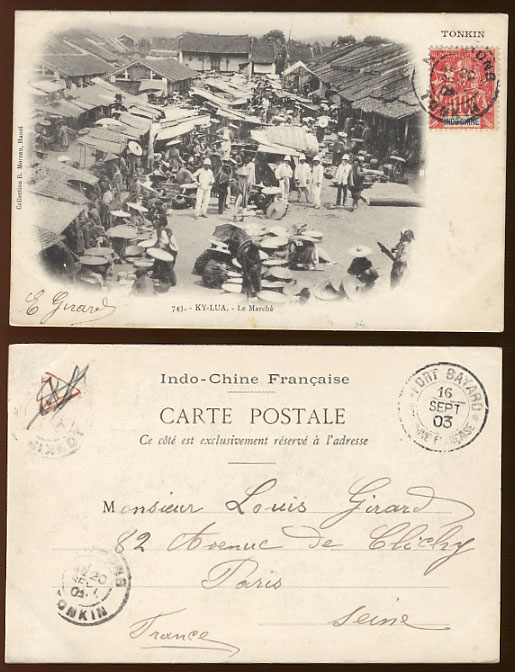 TONKIN
INDO-CHINE
TONKIN
Collection R. Moreau, Hanoï
E Girard
743. - KY-LUA. - Le Marché
Indo-Chine Française
CARTE POSTALE
Ce côté est exclusivement réservé à l'adresse
FORT BAYARD
16
SEPT
03
Monsieur Louis Girard
82 Avenue de Clichy
Paris
Seine
France
20
TONKIN